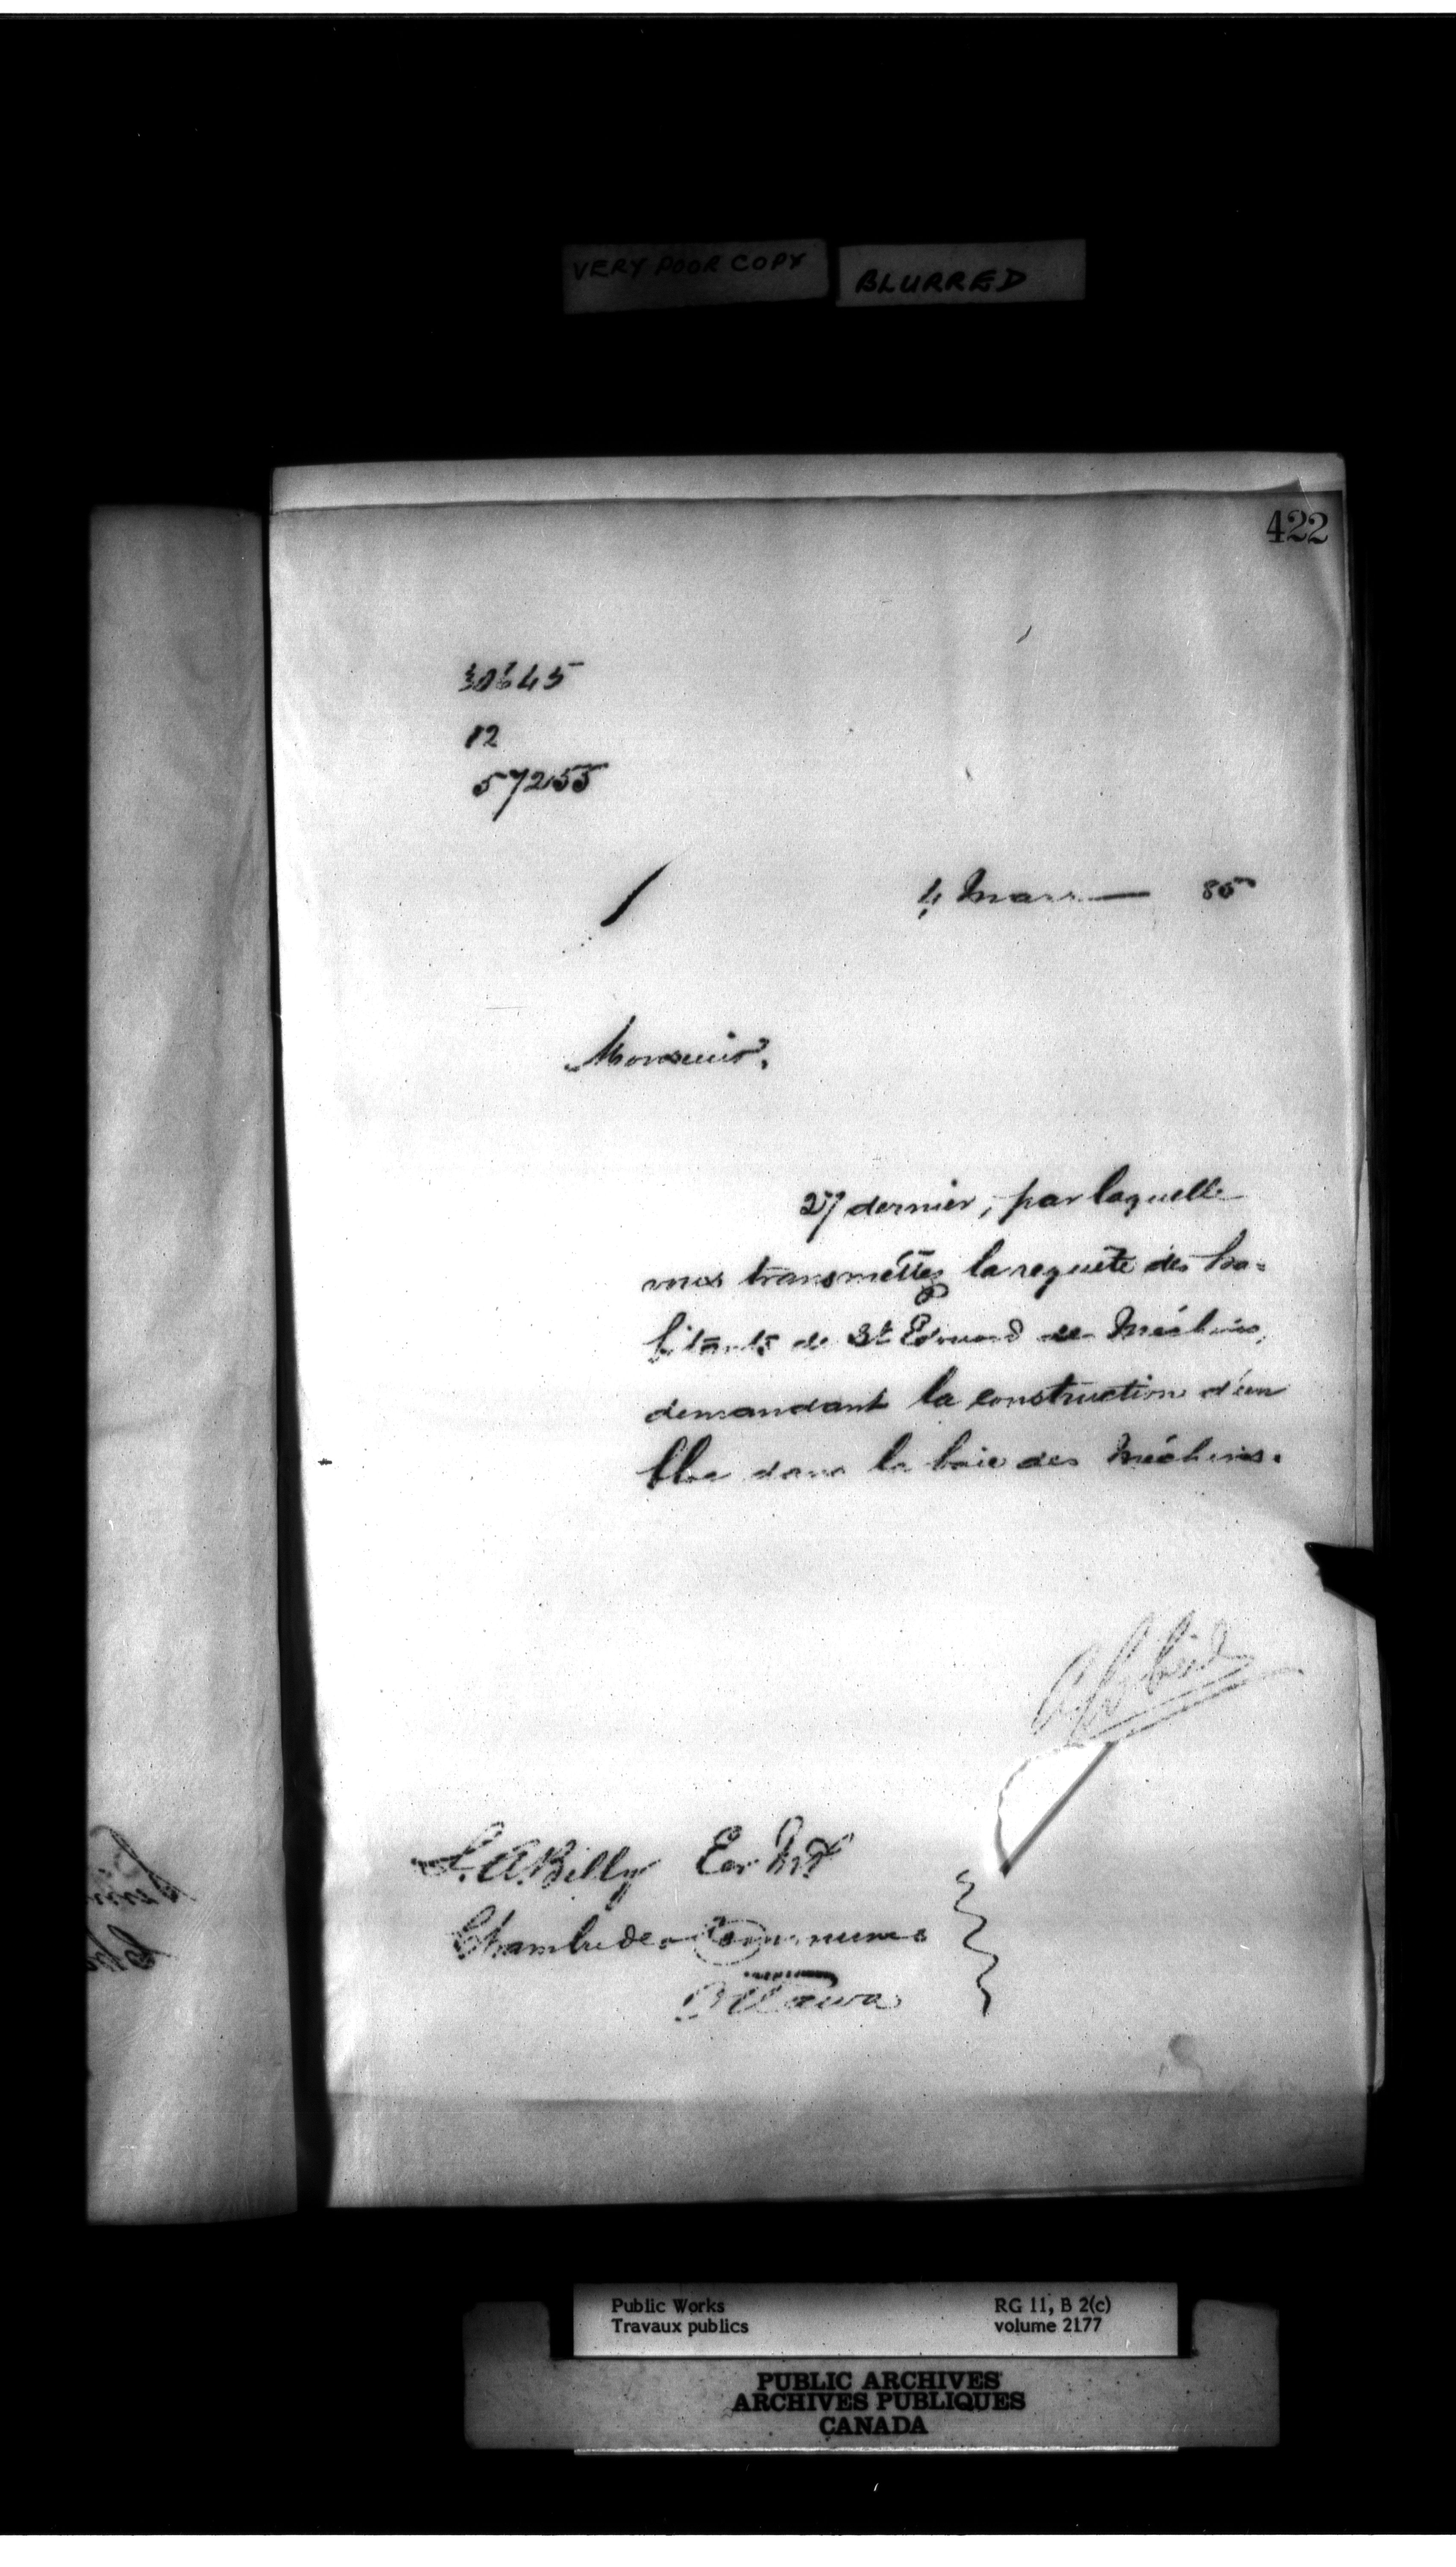 VERY POOR COPY
BLURRED
422
30645
12
57255
4 Mars — 85
Monsieur,
27 dernier, par laquelle
vous transmettez la requête des ha=
bitants de St Edouard des Méchins,
demandant la construction d'un
bloc dans la baie des Méchins.
L. A. Billy Ecr M.P.
Chambre des Communes
Ottawa
Public Works
Travaux publics
RG 11, B 2(c)
volume 2177
PUBLIC ARCHIVES
ARCHIVES PUBLIQUES
CANADA